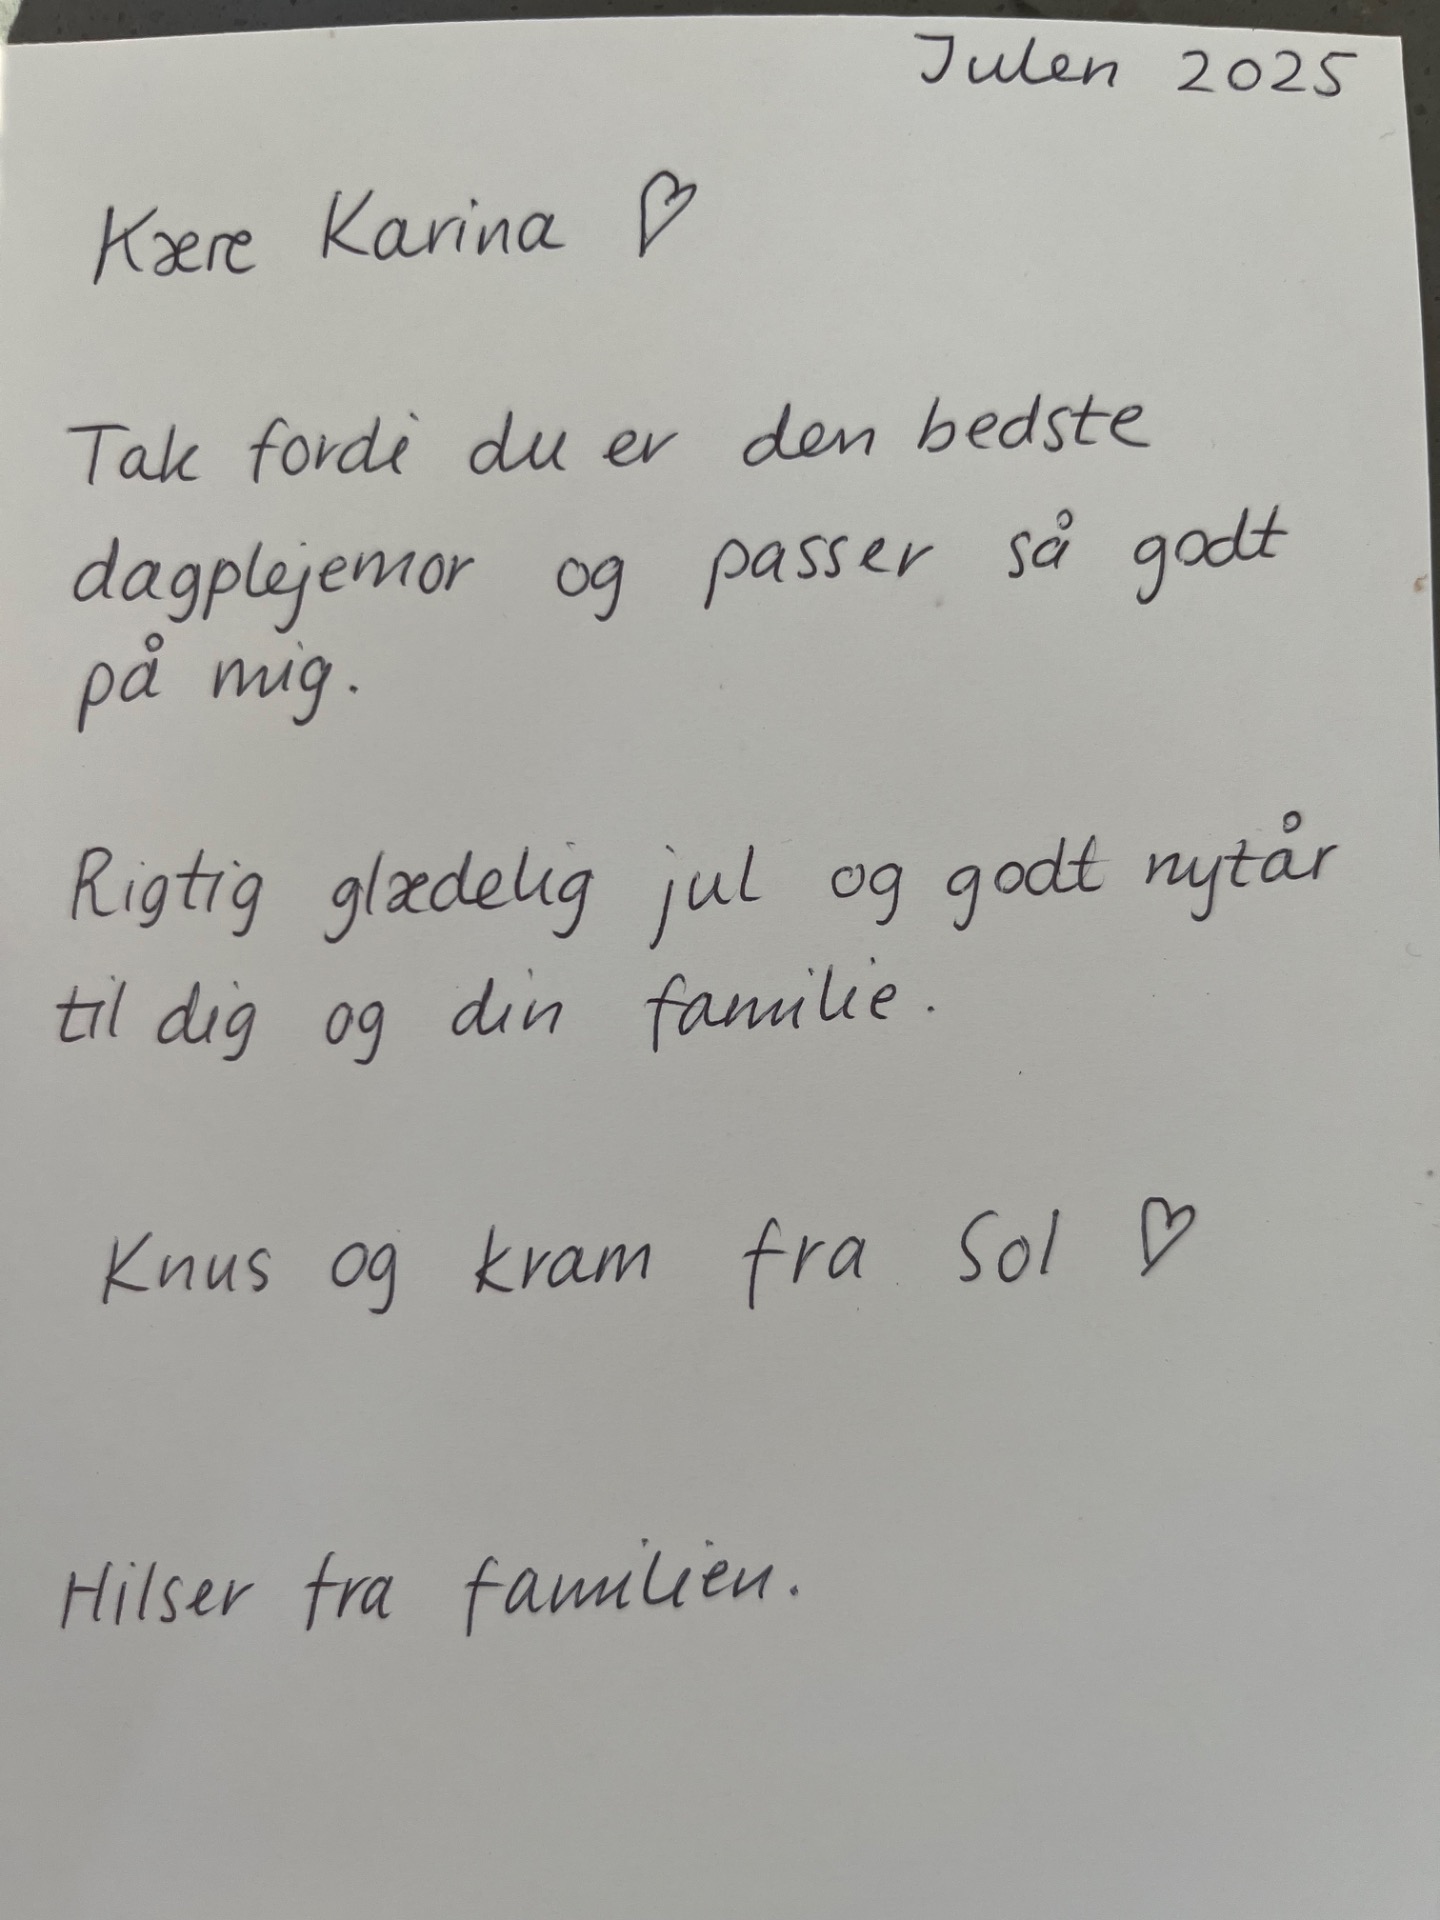 Julen 2025
Kære Karina ♡
Tak fordi du er den bedste
dagplejemor og passer så godt
på mig.
Rigtig glædelig jul og godt nytår
til dig og din familie.
Knus og kram fra Sol ♡
Hilser fra familien.